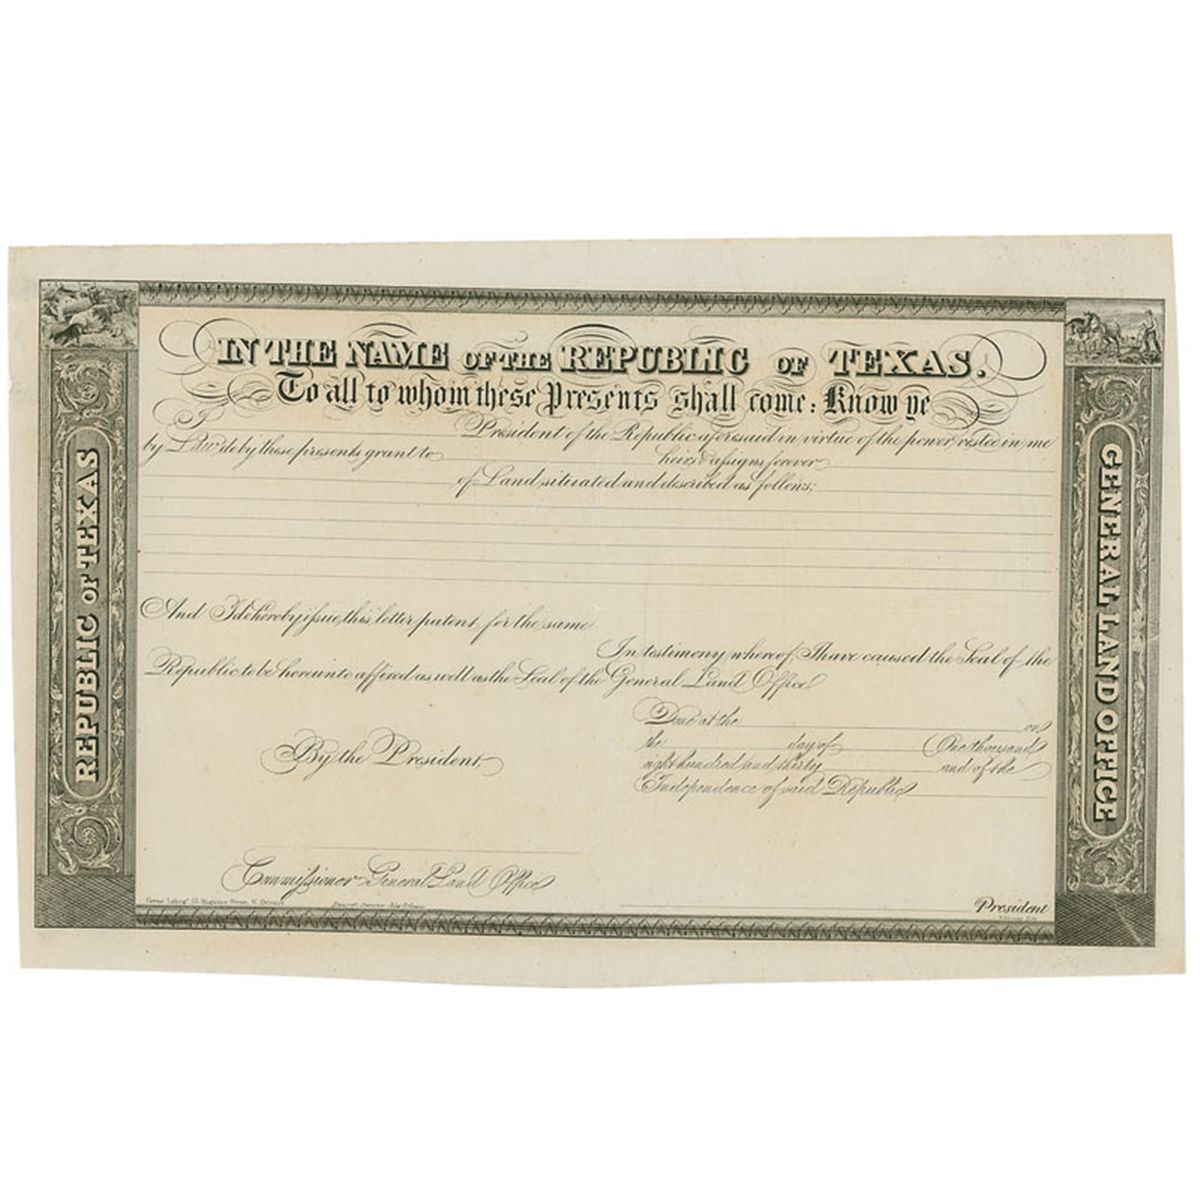 IN THE NAME OF THE REPUBLIC OF TEXAS.
To all to whom these Presents shall come: Know ye
I President of the Republic aforesaid in virtue of the power vested in me
by Law do by these presents grant to heirs & assigns forever
of Land situated and described as follows:
And I do hereby issue this letter patent for the same
In testimony whereof, I have caused the Seal of the
Republic to be hereunto affixed as well as the Seal of the General Land Office
Done at the on
the day of One thousand
eight hundred and thirty and of the
Independence of said Republic
By the President
Commissioner General Land Office
President
REPUBLIC OF TEXAS
GENERAL LAND OFFICE